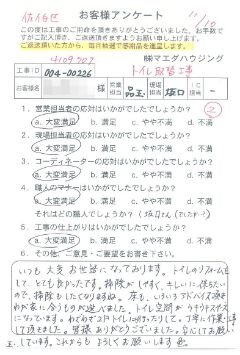 佐伯区
お客様アンケート
11/10
この度は工事のご用命を頂きありがとうございました。お手数で
すがご記入頂き、ご返送頂きますようお願い申し上げます。
ご返送頂いた方から、毎月抽選で感謝品を進呈します。
㈱マエダハウジング
工事ID 004-00226
トイレ取替工事
お客様名
営業担当
現場担当 坂口
1. 営業担当者の応対はいかがでしたでしょうか?
a. 大変満足 b. 満足 c. やや不満 d. 不満
2. 現場担当者の応対はいかがでしたでしょうか?
a. 大変満足 b. 満足 c. やや不満 d. 不満
3. コーディネーターの応対はいかがでしたでしょうか?
a. 大変満足 b. 満足 c. やや不満 d. 不満
4. 職人のマナーはいかがでしたでしょうか?
a. 大変満足 b. 満足 c. やや不満 d. 不満
それはどの職人でしょうか?
5. 工事の仕上がりはいかがでしたでしょうか?
a. 大変満足 b. 満足 c. やや不満 d. 不満
6. その他、ご意見・ご要望をお書き下さい。
いつも大変お世話になっております。トイレのリフォームを
して、とても良かったです。掃除がしやすく、キレイに保ちたい
ので、掃除もしたくなりますね。床も、いろいろアドバイス頂き
我が家に合うものが選べました。トイレ空間がウキウキスペース
になっています。
して頂きました。皆様ありがとうございました。
います。これからもよろしくお願いします。